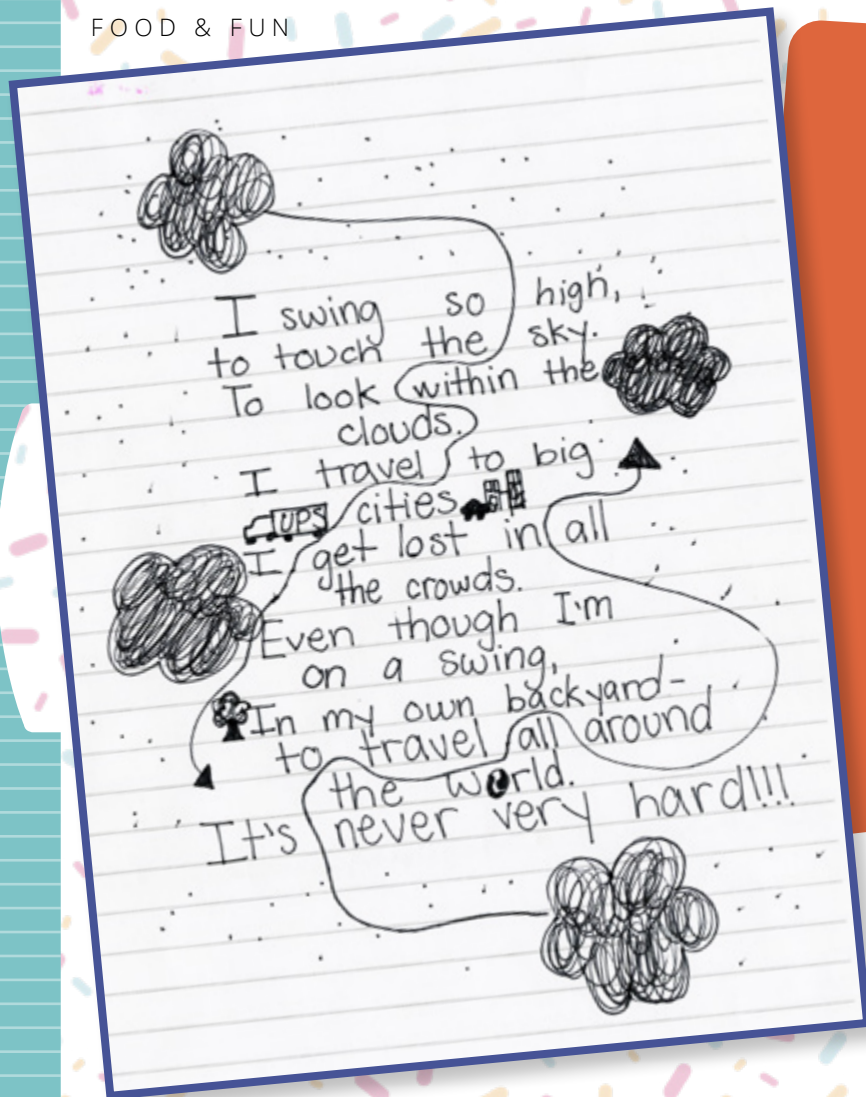 FOOD & FUN
I swing so high,
to touch the sky.
To look within the
clouds.
I travel to big
UPS cities
I get lost in all
the crowds.
Even though I'm
on a swing,
In my own backyard-
to travel all around
the world.
It's never very hard!!!